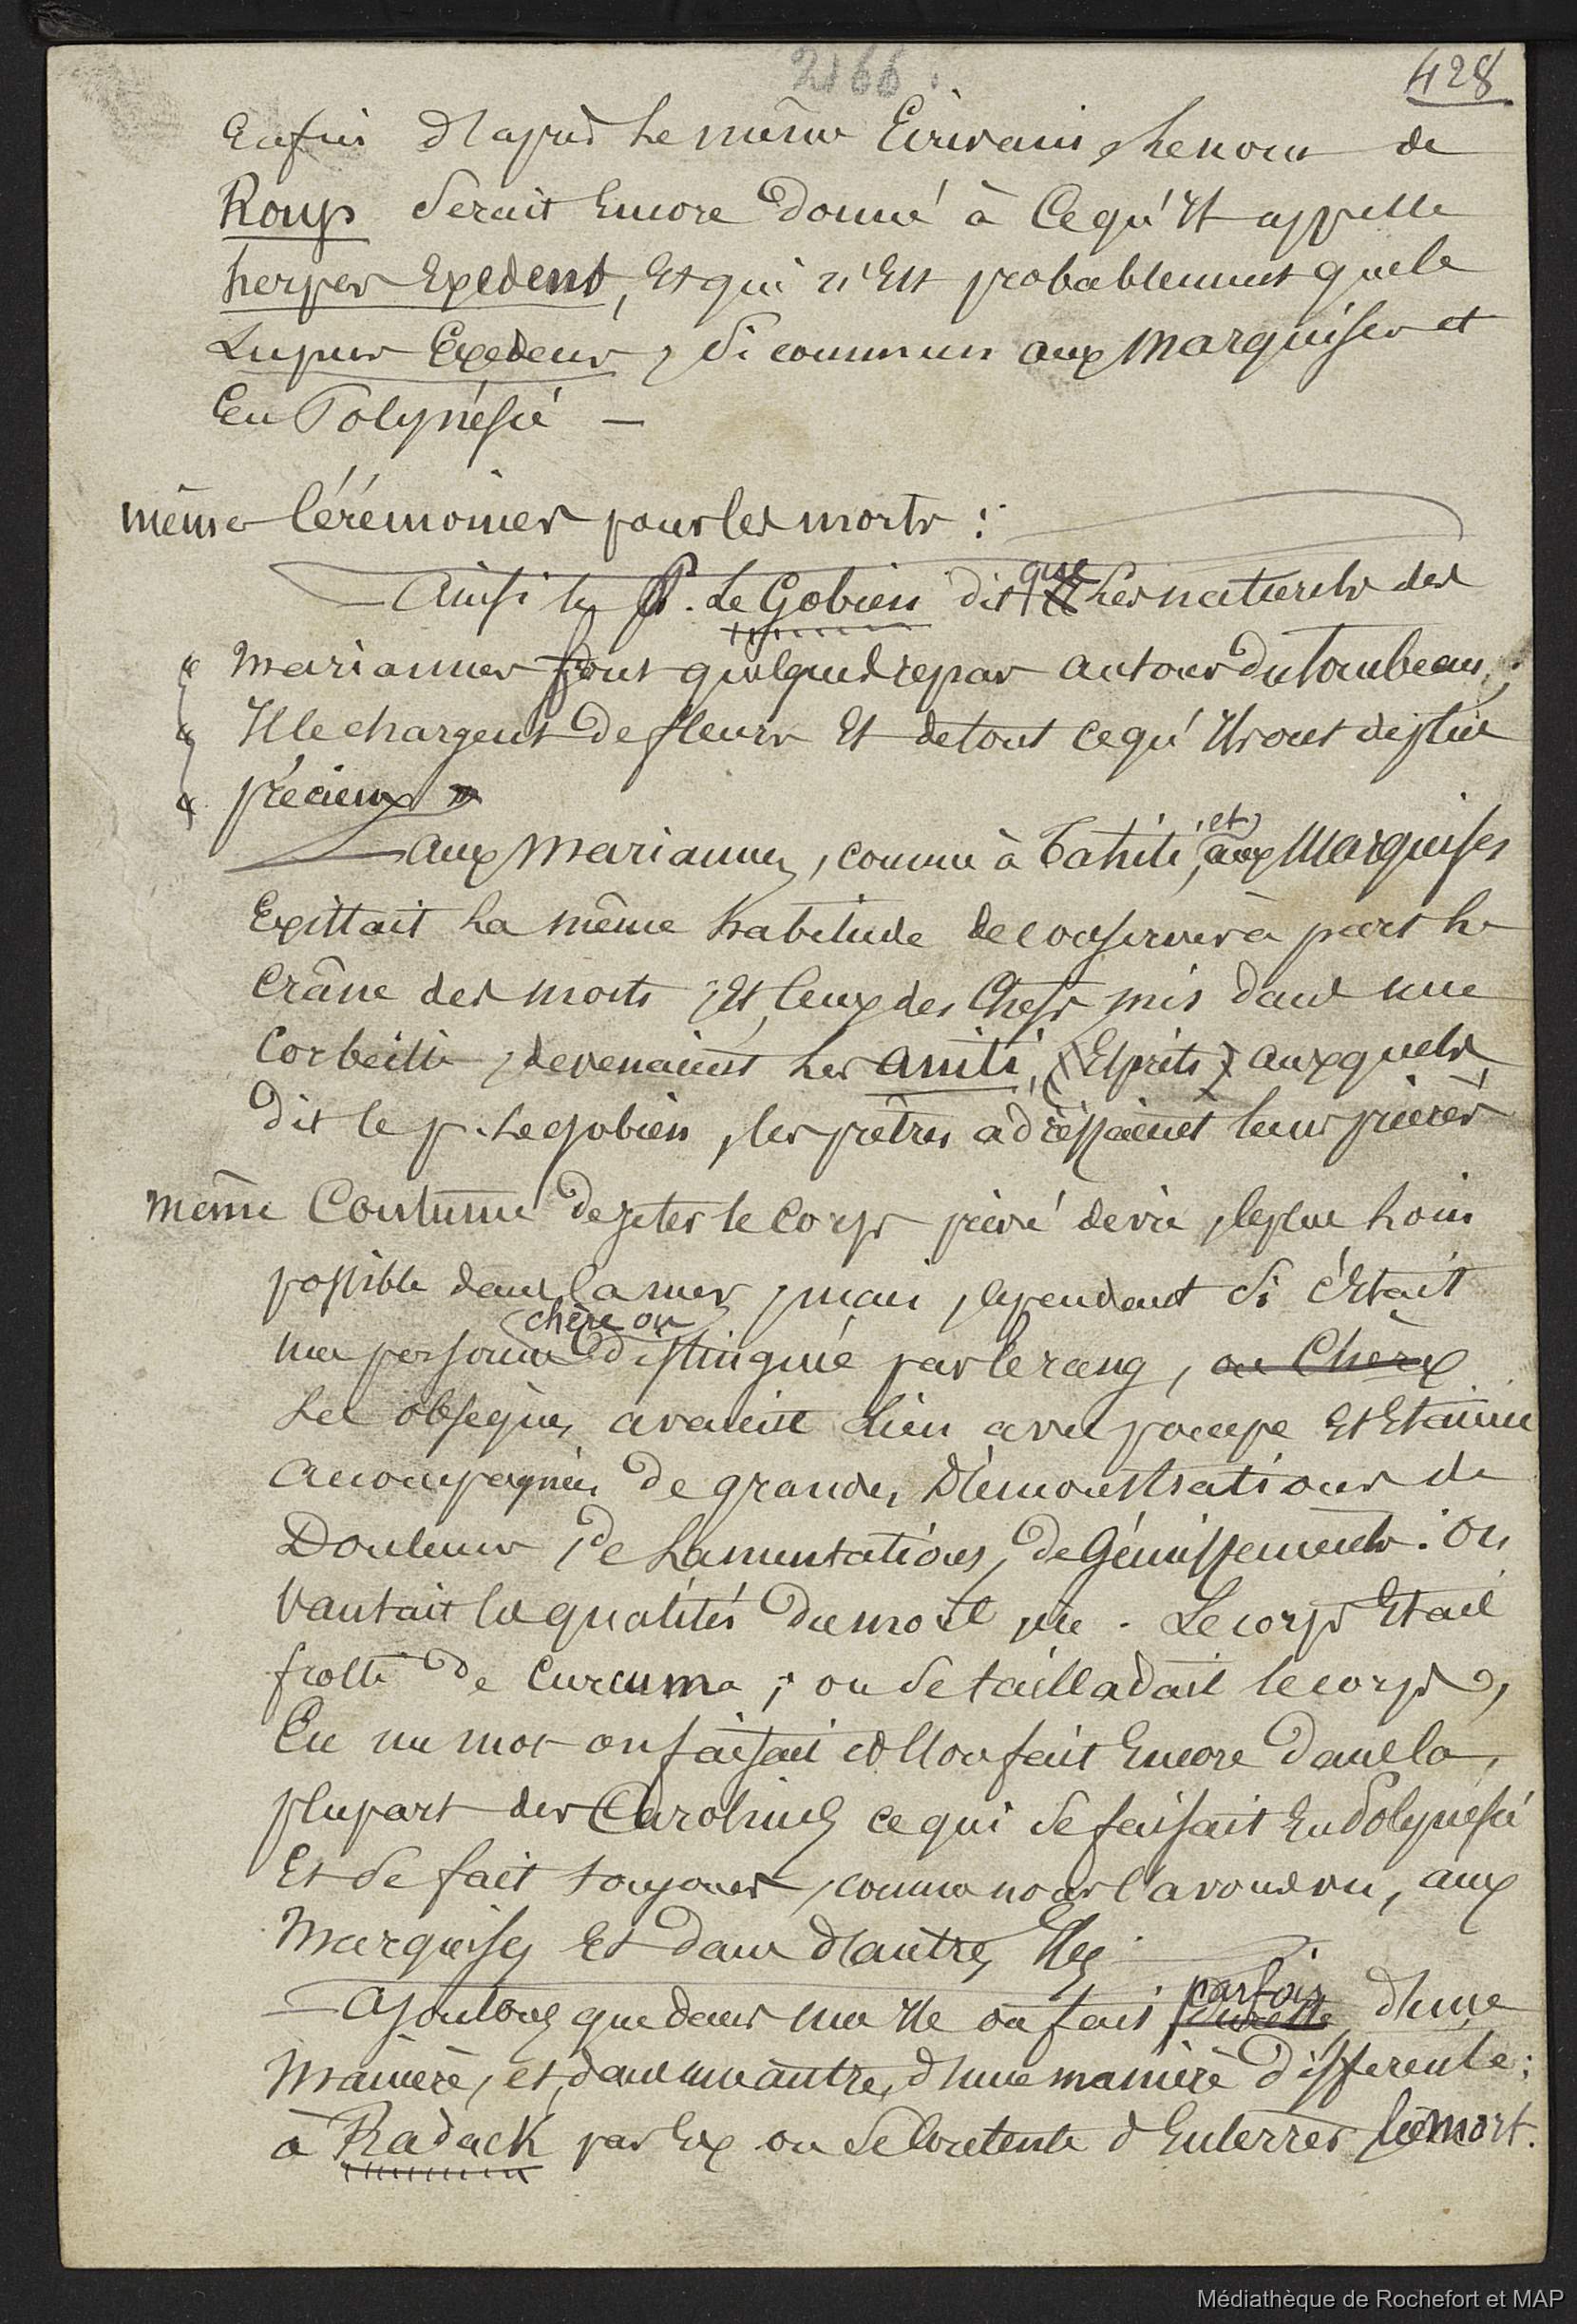 2166.
428
Enfin d'après le même Écrivain, le nom de
Roup serait Encore donné à Ce qu'Il appelle
herpes Exedens, Et qui n'Est probablement que le
Lupus Exedens, Si commun aux Marquises et
En Polynésie —
même Cérémonies pour les morts :
— Ainsi le P. Le Gobien dit que les naturels des
« Mariannes font quelques repas autour du tombeau ;
« Ils le chargent de fleurs Et de tout ce qu'Ils ont de plus
« précieux »
— aux Mariannes, comme à Tahiti, et aux Marquises
Existait la même habitude de conserver à part le
Crâne des morts ; Et, Ceux des Chefs, mis dans une
Corbeille, devenaient les aniti, (Esprits) auxquels,
Dit le p. Legobien, les prêtres adressaient leurs prières
même Coutume de jeter le Corps privé de vie, le plus loin
possible dans la mer, mais, cependant si c'Etait
une personne chère ou distinguée par le rang, ou Chère
les obsèques avaient lieu avec pompe Et Etaient
accompagnées de grandes Démonstrations de
Douleur, de Lamentations, de Gémissements. On
Vantait les qualités du mort, etc. Le corps Etait
frotté de Curcuma ; on se tailladait le corps,
En un mot on faisait et l'on fait Encore dans la
plupart des Carolines ce qui se faisait En Polynésie
Et se fait toujours, comme nous l'avons vu, aux
Marquises Et dans d'autres Iles.
— Ajoutons que dans une Ile on fait parfois d'une
Manière, et, dans une autre, d'une manière différente :
à Radack par Ex on se Contente d'Enterrer le mort.
Médiathèque de Rochefort et MAP